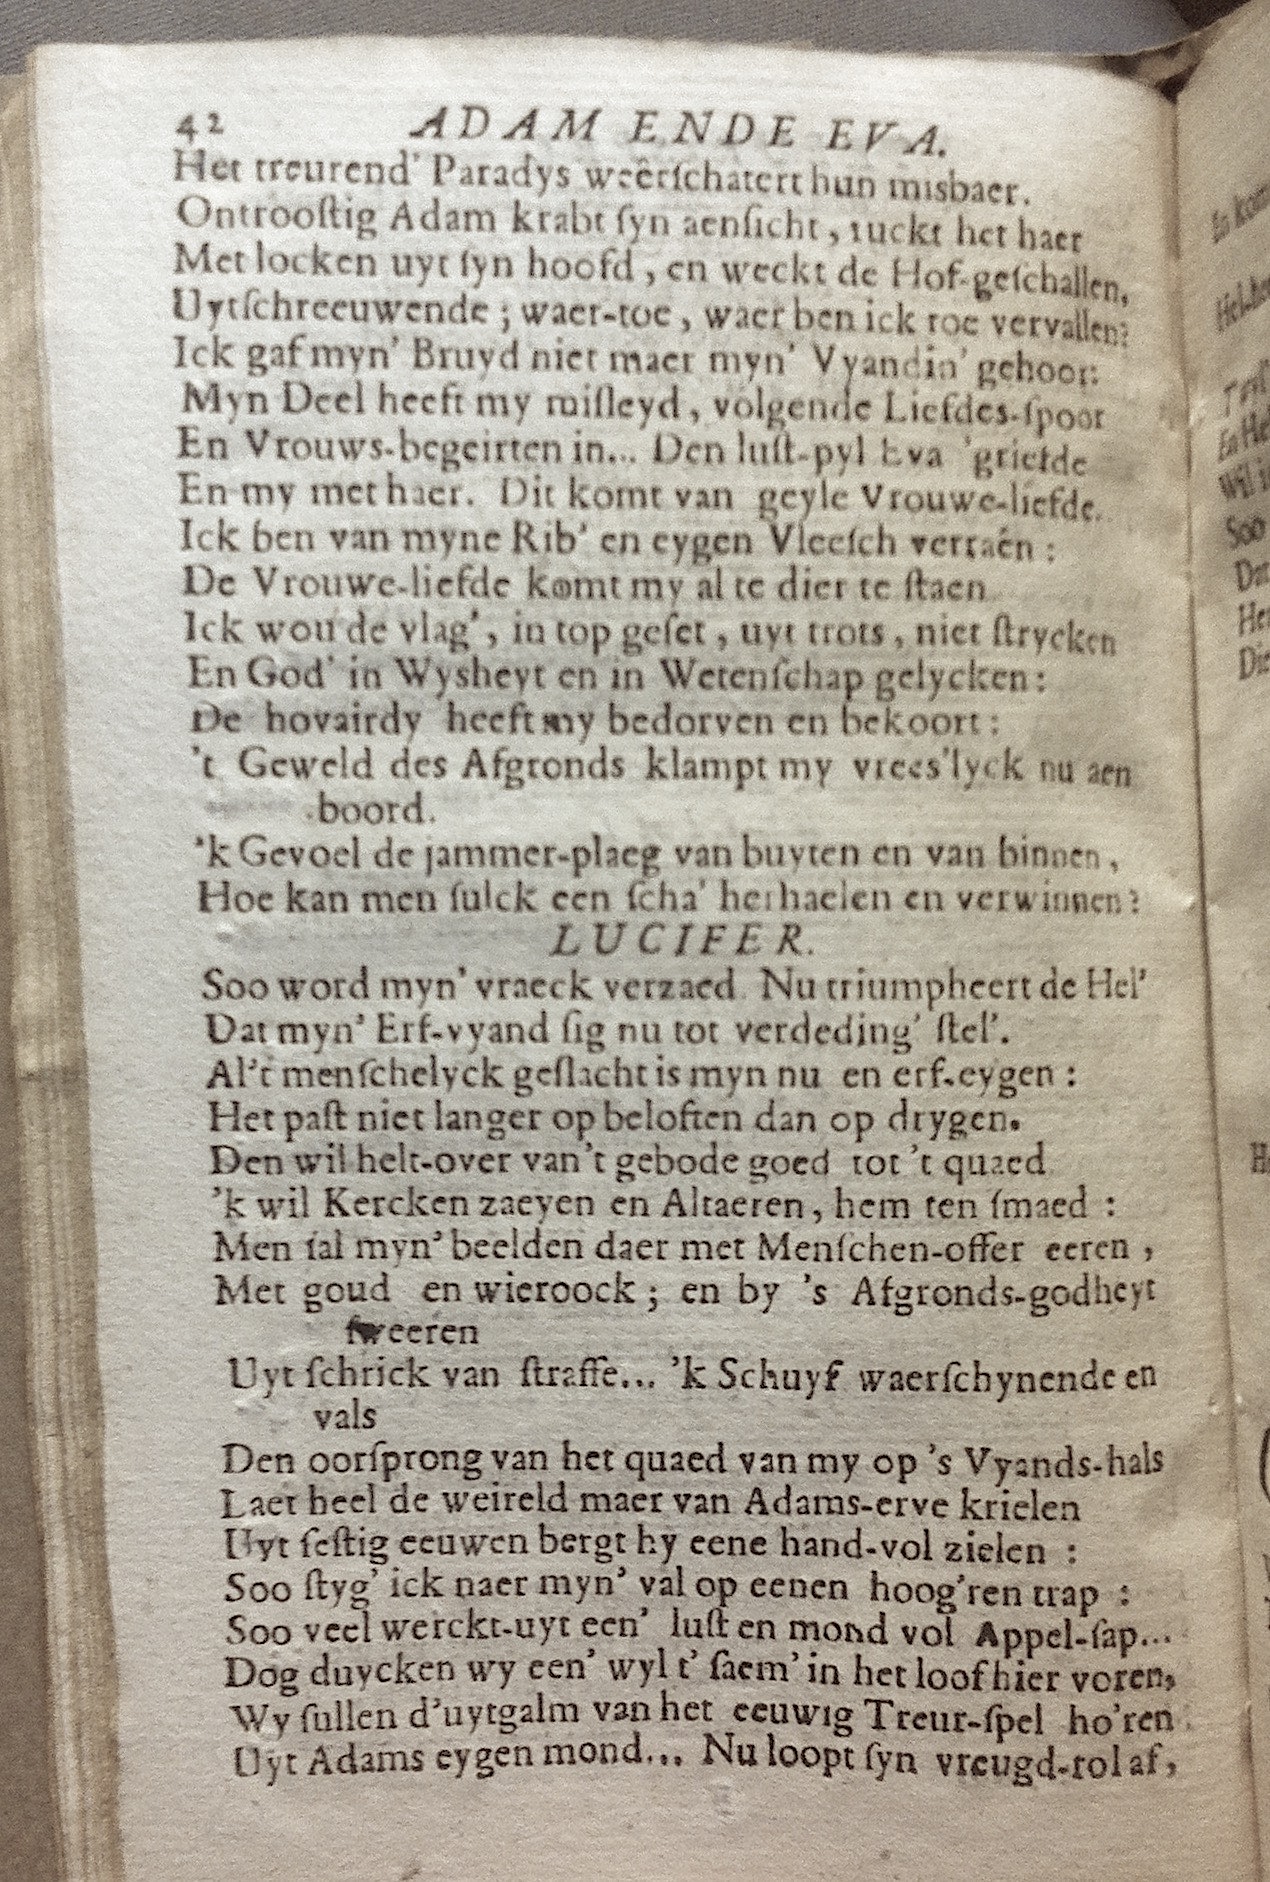 42 ADAM ENDE EVA.
Het treurend' Paradys weêrſchatert hun misbaer.
Ontrooſtig Adam krabt ſyn aenſicht, ruckt het haer
Met locken uyt ſyn hoofd, en weckt de Hof-geſchallen,
Uytſchreeuwende; waer-toe, waer ben ick toe vervallen?
Ick gaf myn' Bruyd niet maer myn' Vyandin' gehoor:
Myn Deel heeft my miſleyd, volgende Liefdes-ſpoor
En Vrouws-begeirten in... Den luſt-pyl Eva 'griefde
En my met haer. Dit komt van geyle Vrouwe-liefde.
Ick ben van myne Rib' en eygen Vleeſch verraén:
De Vrouwe-liefde komt my al te dier te ſtaen
Ick wou de vlag', in top geſet, uyt trots, niet ſtrycken
En God' in Wysheyt en in Wetenſchap gelycken:
De hovairdy heeft my bedorven en bekoort:
't Geweld des Afgronds klampt my vrees'lyck nu aen
boord.
'k Gevoel de jammer-plaeg van buyten en van binnen,
Hoe kan men ſulck een ſcha' herhaelen en verwinnen?
LUCIFER.
Soo word myn' vraeck verzaed. Nu triumpheert de Hel'
Dat myn' Erf-vyand ſig nu tot verdeding' ſtel'.
Al't menſchelyck geſlacht is myn nu en erf-eygen:
Het paſt niet langer op beloften dan op drygen.
Den wil helt-over van't gebode goed tot 't quaed
'k wil Kercken zaeyen en Altaeren, hem ten ſmaed:
Men ſal myn' beelden daer met Menſchen-offer eeren,
Met goud en wieroock; en by 's Afgronds-godheyt
ſweeren
Uyt ſchrick van ſtraffe... 'k Schuyf waerſchynende en
vals
Den oorſprong van het quaed van my op 's Vyands-hals
Laet heel de weireld maer van Adams-erve krielen
Uyt ſeſtig eeuwen bergt hy eene hand-vol zielen:
Soo ſtyg' ick naer myn' val op eenen hoog'ren trap:
Soo veel werckt-uyt een' luſt en mond vol Appel-ſap...
Dog duycken wy een' wyl t' ſaem' in het loof hier voren,
Wy ſullen d'uytgalm van het eeuwig Treur-ſpel ho'ren
Uyt Adams eygen mond... Nu loopt ſyn vreugd-rol af,